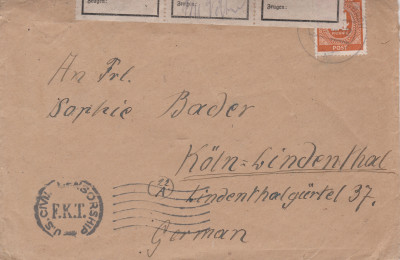 Zeugen: Zeugen: Zeugen:
POST
An Frl.
Sophie Bader
Köln-Lindenthal
Lindenthalgürtel 37.
German
U.S. CIVIL CENSORSHIP
F.K.T.
A